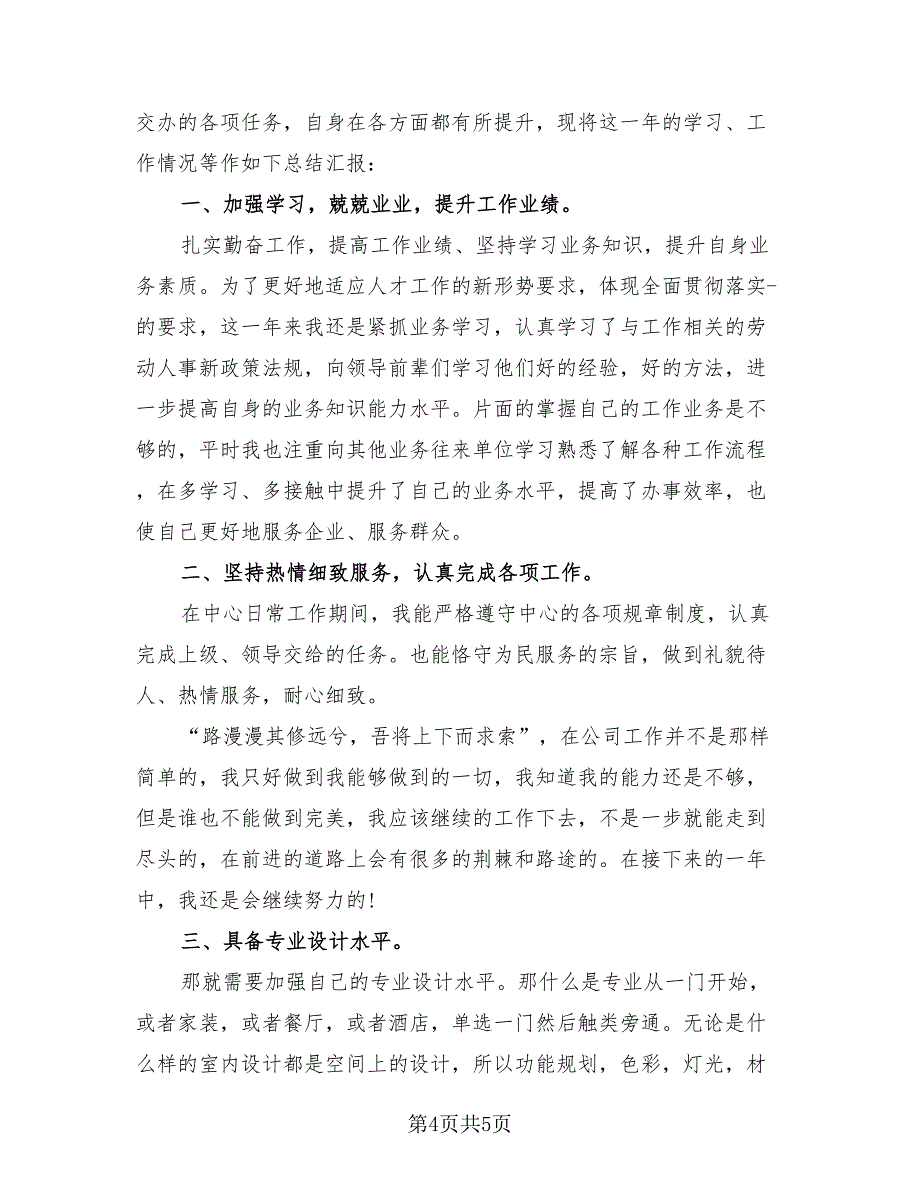 交办的各项任务，自身在各方面都有所提升，现将这一年的学习、工
作情况等作如下总结汇报：
一、加强学习，兢兢业业，提升工作业绩。
扎实勤奋工作，提高工作业绩、坚持学习业务知识，提升自身业
务素质。为了更好地适应人才工作的新形势要求，体现全面贯彻落实-
的要求，这一年来我还是紧抓业务学习，认真学习了与工作相关的劳
动人事新政策法规，向领导前辈们学习他们好的经验，好的方法，进
一步提高自身的业务知识能力水平。片面的掌握自己的工作业务是不
够的，平时我也注重向其他业务往来单位学习熟悉了解各种工作流程
，在多学习、多接触中提升了自己的业务水平，提高了办事效率，也
使自己更好地服务企业、服务群众。
二、坚持热情细致服务，认真完成各项工作。
在中心日常工作期间，我能严格遵守中心的各项规章制度，认真
完成上级、领导交给的任务。也能恪守为民服务的宗旨，做到礼貌待
人、热情服务，耐心细致。
“路漫漫其修远兮，吾将上下而求索”，在公司工作并不是那样
简单的，我只好做到我能够做到的一切，我知道我的能力还是不够，
但是谁也不能做到完美，我应该继续的工作下去，不是一步就能走到
尽头的，在前进的道路上会有很多的荆棘和路途的。在接下来的一年
中，我还是会继续努力的!
三、具备专业设计水平。
那就需要加强自己的专业设计水平。那什么是专业从一门开始，
或者家装，或者餐厅，或者酒店，单选一门然后触类旁通。无论是什
么样的室内设计都是空间上的设计，所以功能规划，色彩，灯光，材
第4页共5页